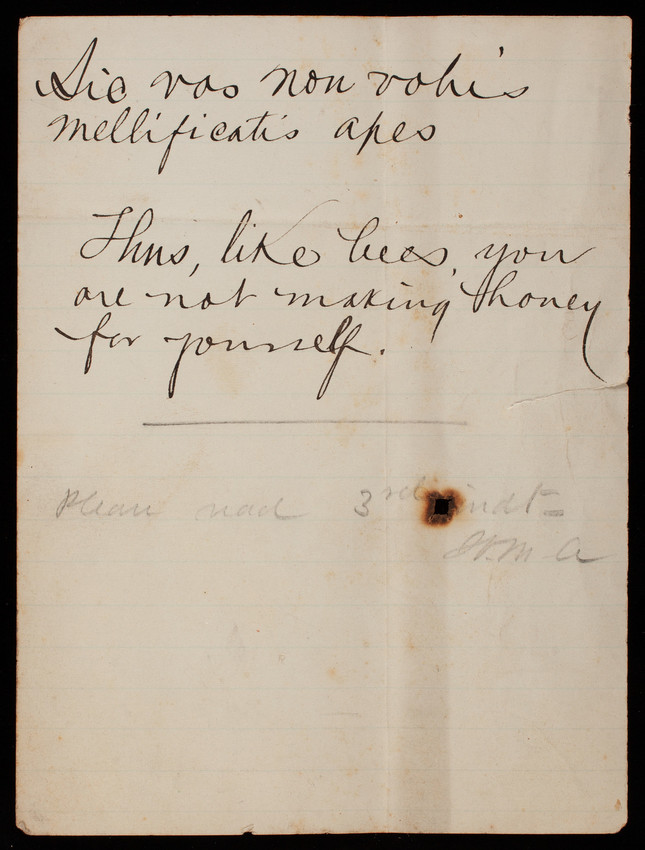 Sic vos non vobis
mellificatis apes
Thus, like bees, you
are not making honey
for yourself.
Please read 3rd